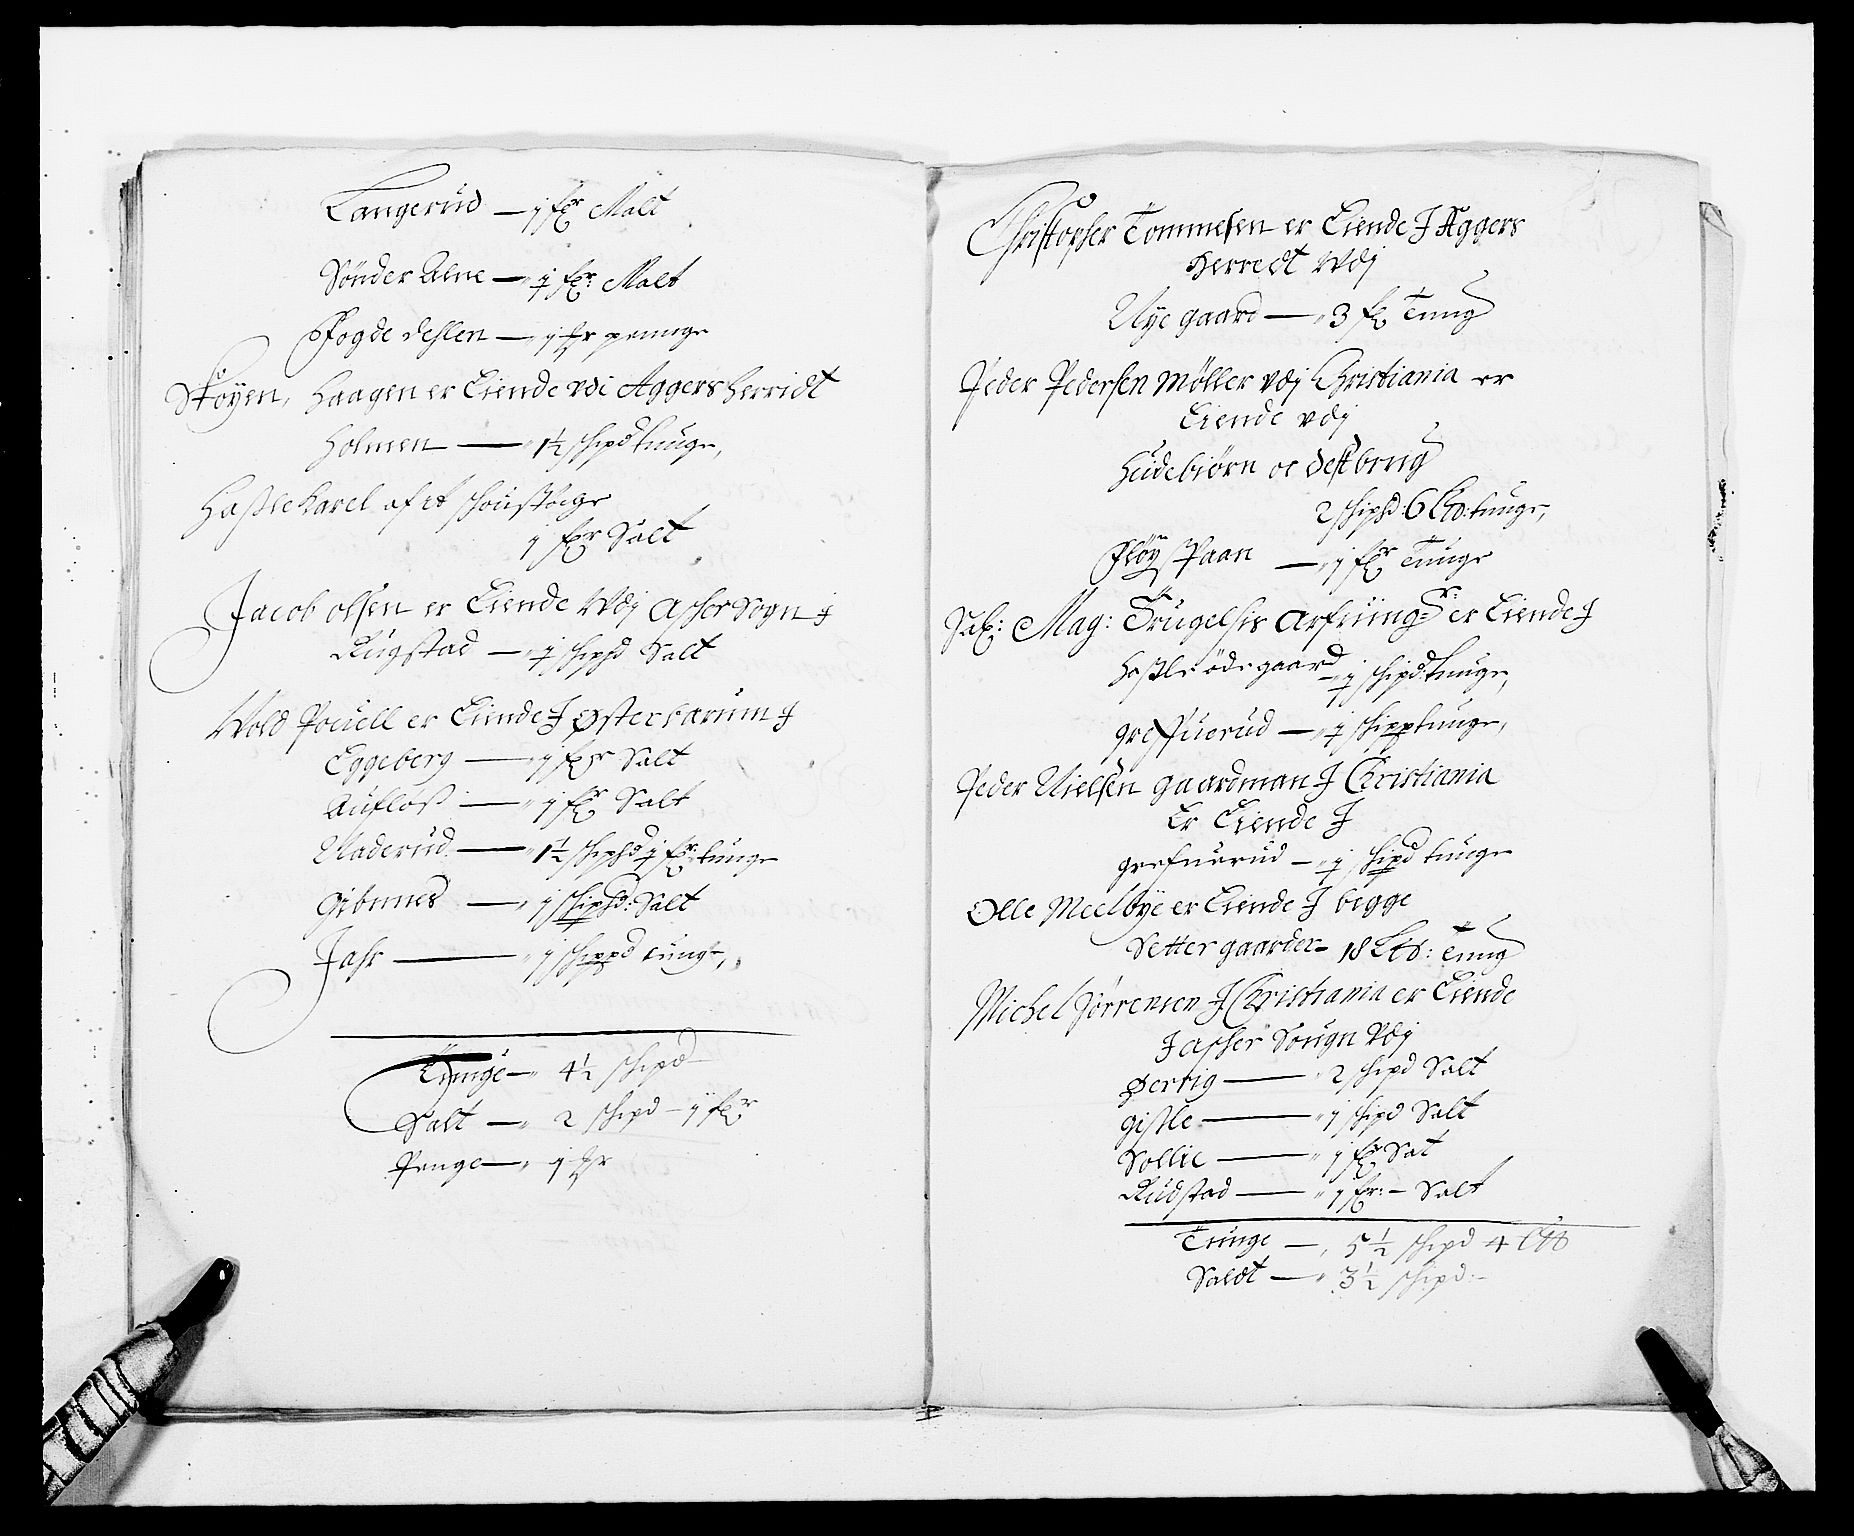 Langerud — j fr Malt
Sønder Alne — j fr: Malt
Fogde dehlen — j fr pennge
Skøyen, Haagen er Eiende vdi Aggers herridt
Holmen — 1½ schipd tunge,
Haßle Karel af it
j fr Salt
Jacob olsen er Eiende Vdj Asker Sogn J
Rugstad — j schipd Salt
Wold Pouell er Eiende J Østerbarum J
Eggeberg — j fr Salt
Aufloß — j fr Salt
Naderud — 1½ schipd j fr: tunge
Gibnnes — j schipd: Salt
Jahr — j schippd tunge,
Tunge — 4½ schipd
Salt — 2 schipd — j fr
Penge — j fr
Christopher Tommesen er Eiende J Aggers
herredt Vdj
Nye gaard — 3 fr Tung
Peder Pedersen Møller vdj Christiania er
Eiende vdj
Heidebiørn oc Vestbrug
2 schipd: 6 Ltb: tunge,
Fløyspaan — j fr Tunge
Sal: Mag: Trugelsis Arfuing:r er Eiende J
Haßle ødegaard — j schipd: tunge,
greffuerud — j schipp tunge,
Peder Nielsen gaardman J Christiania
Er Eiende J
grefuerud — j schipd tunge
Olle Meelbye er Eiende J begge
Setter gaarder — 18 Ltb: Tung
Michel Jørrensen J Christiania er Eiende
J asker Sougn Vdj
Berrig — 2 schipd Salt
Gisle — j schipd Salt
Sollie — j fr Salt
Rudstad — j fr: — Salt
Tunge — 5½ schipd 4 Ltb
Saldt — 3½ schipd: —